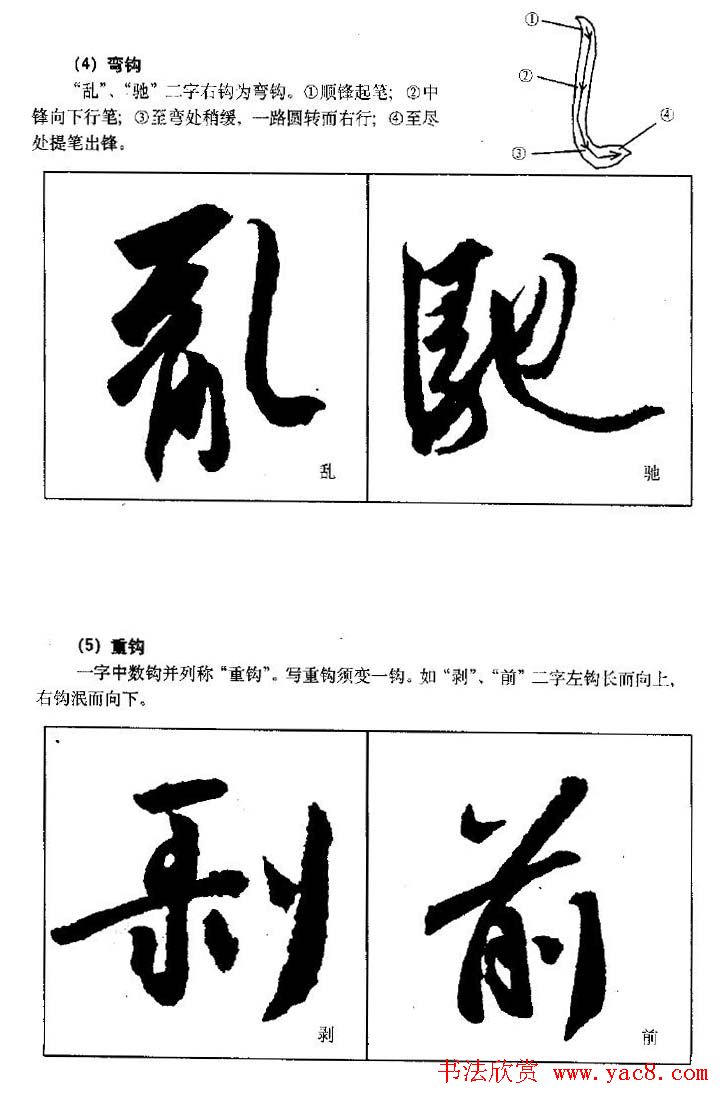 (4) 弯钩
“乱”、“驰”二字右钩为弯钩。①顺锋起笔；②中
锋向下行笔；③至弯处稍缓，一路圆转而右行；④至尽
处提笔出锋。
①
②
③
④
亂
馳
乱
驰
(5) 重钩
一字中数钩并列称“重钩”。写重钩须变一钩。如“剥”、“前”二字左钩长而向上，
右钩泯而向下。
剥
前
剥
前
书法欣赏 www.yac8.com